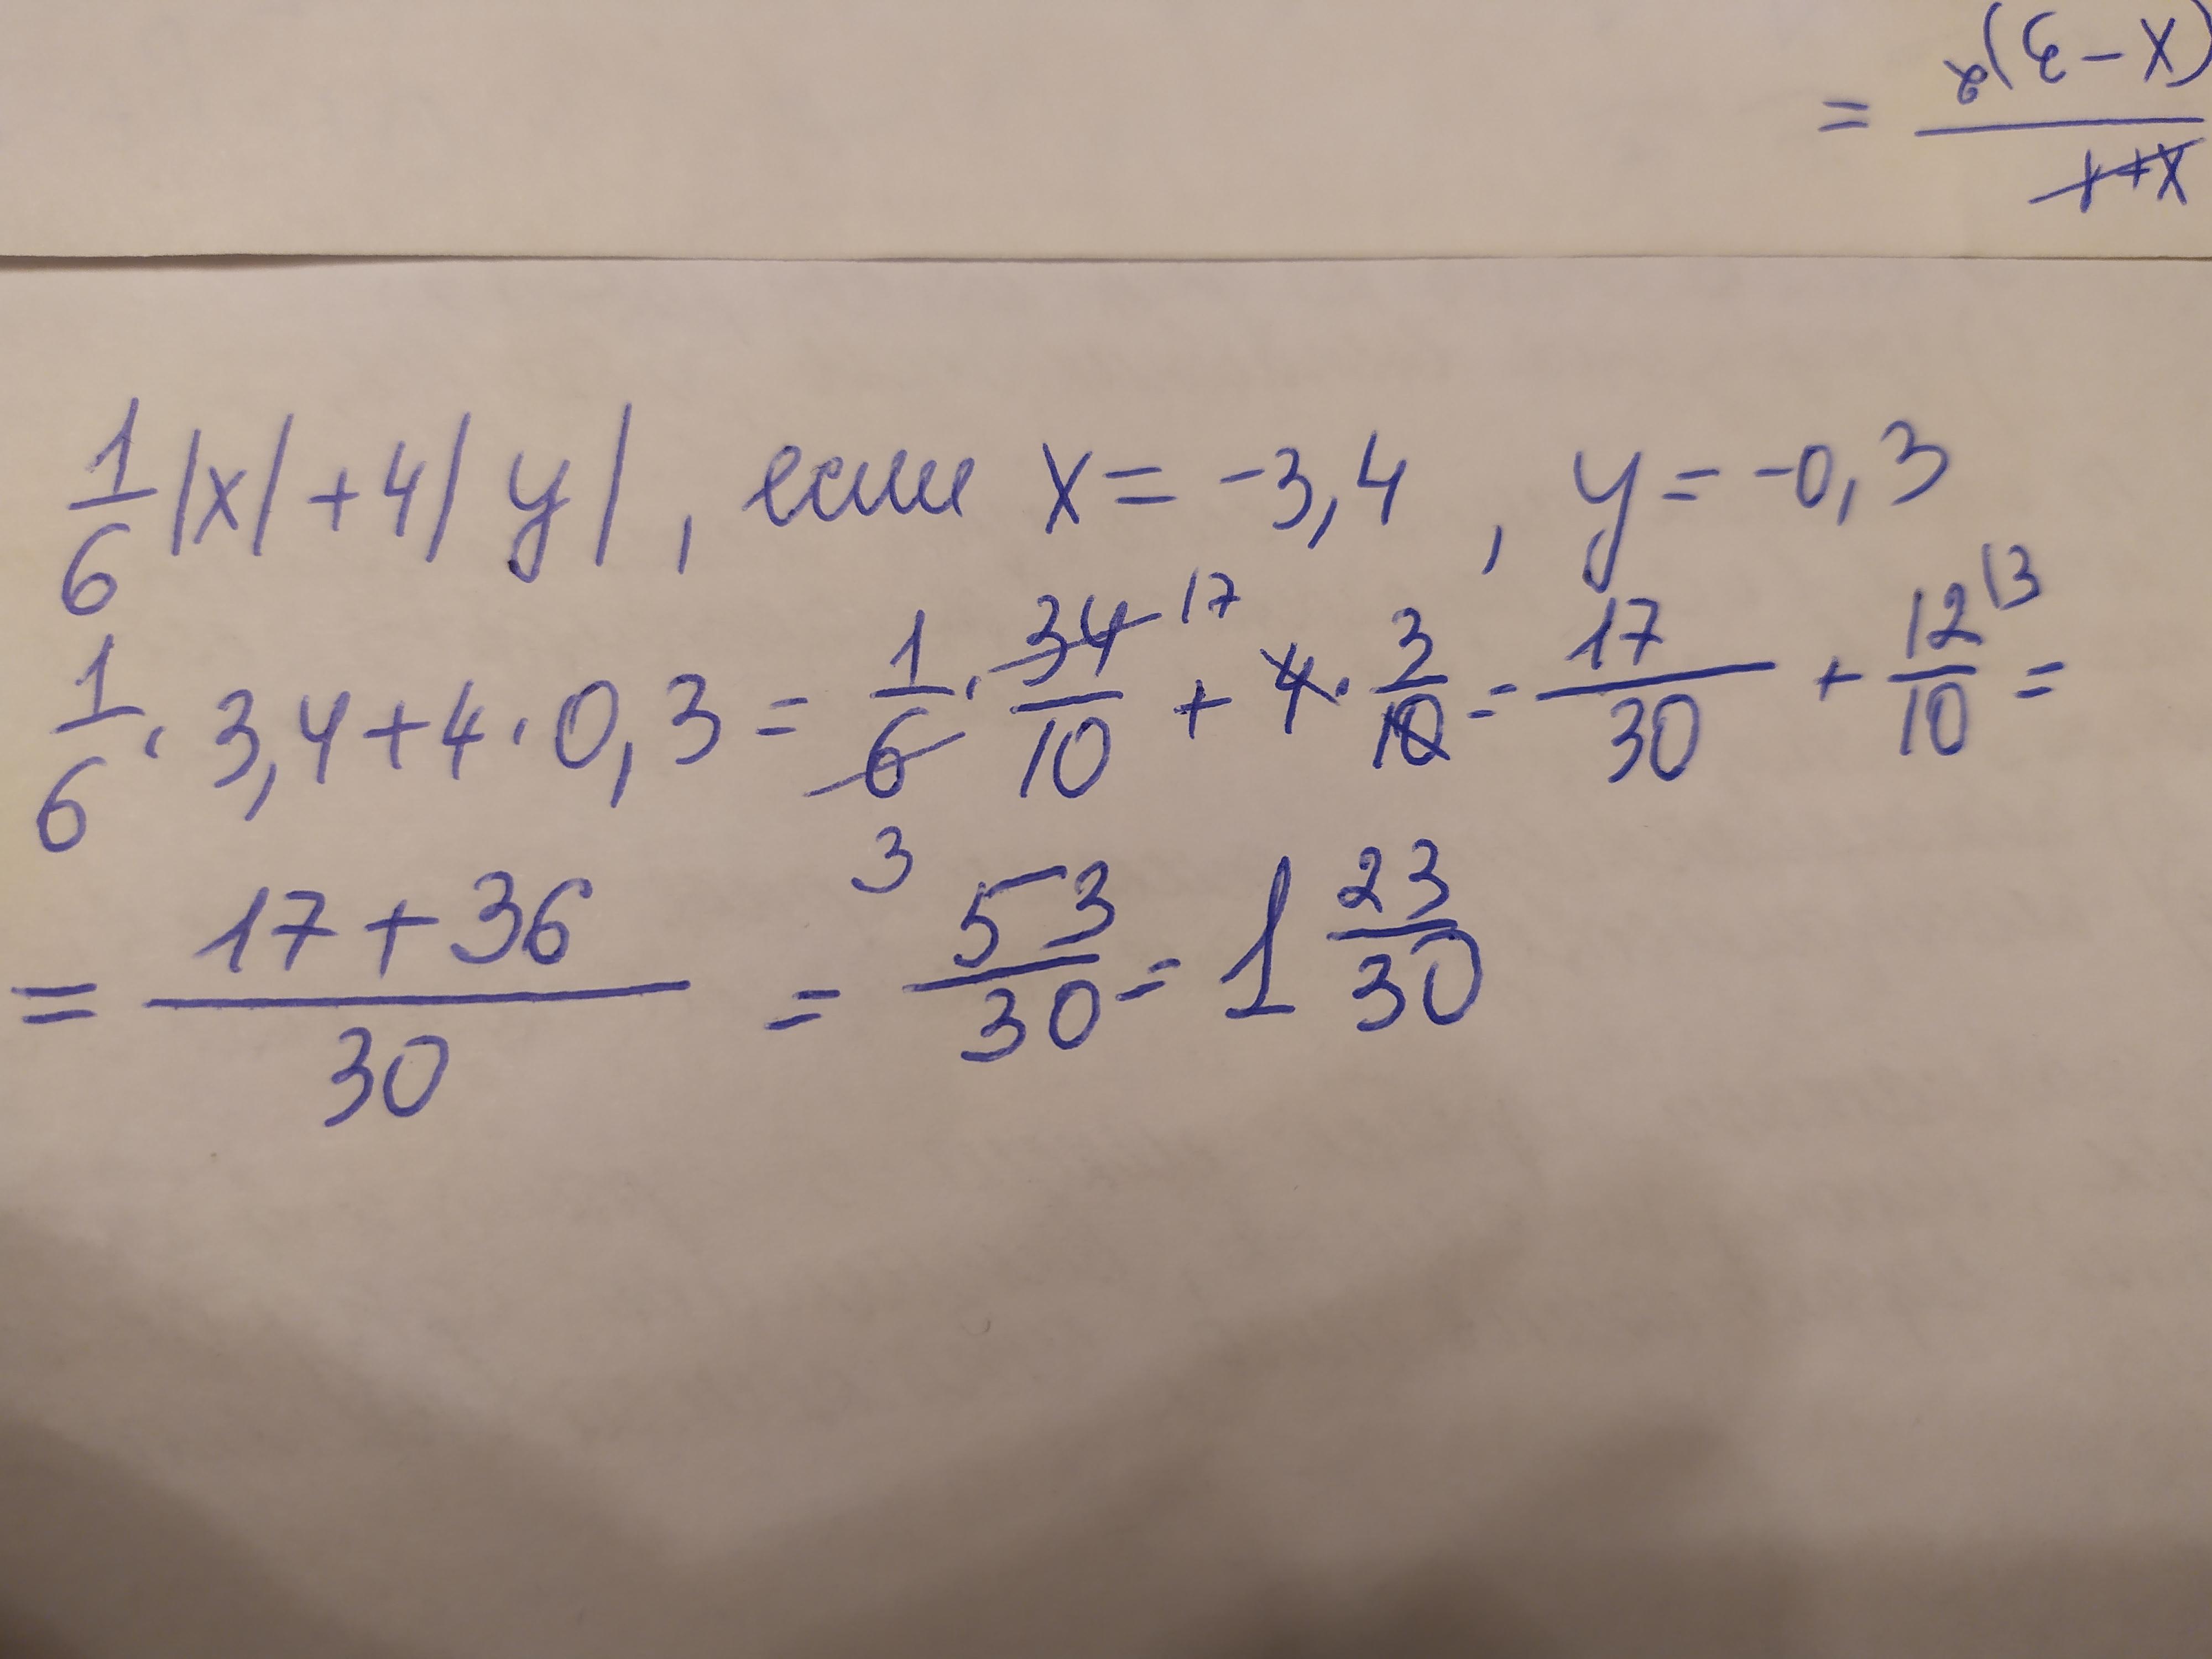 (x-3)²
=
x+1
1/6 |x| + 4|y|, если x = -3,4, y = -0,3
1/6 · 3,4 + 4 · 0,3 = 1/6 · 34/10 17 + 4 · 3/10 = 17/30 + 12/10 |3 =
3
= 17 + 36/30 = 53/30 = 1 23/30